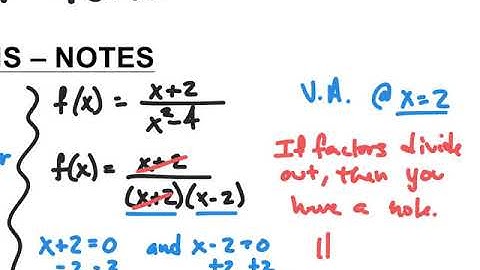 NS – NOTES
f(x) = x+2 / x²-4
V.A. @ x=2
f(x) = x+2 / (x+2)(x-2)
If factors divide
out, then you
have a hole.
x+2=0 and x-2=0
-2 -2 +2 +2